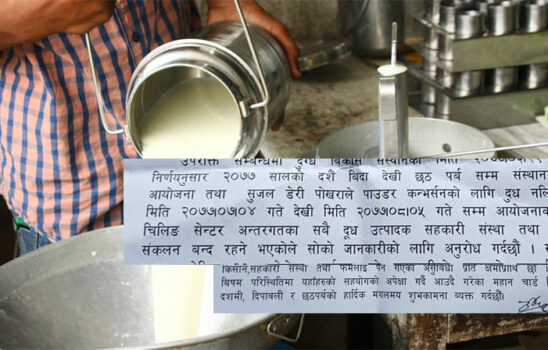 उपरोक्त सम्बन्धमा दुग्ध विकास संस्थानको मिति
निर्णयनुसार २०७७ सालको दशै बिदा देखी छठ पर्व सम्म संस्थान
आयोजना तथा सुजल डेरी पोखराले पाउडर कन्भर्सनको लागि दुध नलि
मिति २०७७।०७।०४ गते देखी मिति २०७७।०८।०५ गते सम्म आयोजनाक
चिलिङ सेन्टर अन्तरगतका सबै दूध उत्पादक सहकारी संस्था तथा
संकलन बन्द रहने भएकोले सोको जानकारीको लागि अनुरोध गर्दछौं ।
किसान,सहकारी संस्था तथा फर्मलाई पर्न गएका असुविधा प्रति क्षमाप्रार्थी छौं
बिषम परिस्थितिमा यहाँहरुको सहयोगको अपेक्षा गर्दै आउदै गरेका महान चार्ड
दशमी, दिपावली र छठपर्वको हार्दिक मंगलमय शुभकामना व्यक्त गर्दछौं।